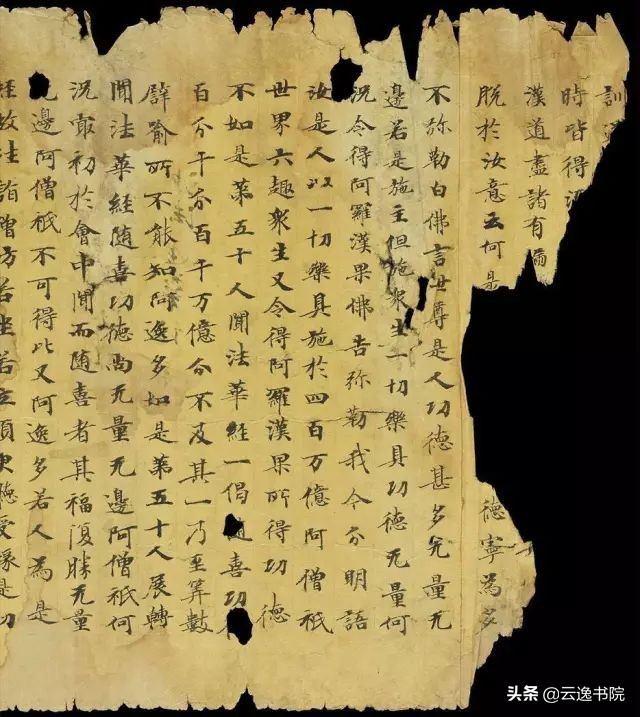 訓
時皆得
漢道盡諸有
脫於汝意云何是德寧為多
不弥勒白佛言世尊是人功德甚多无量无
邊若是施主但施衆生一切樂具功德无量何
況令得阿羅漢果佛告弥勒我今分明語
汝是人以一切樂具施於四百万億阿僧祇
世界六趣衆生又令得阿羅漢果所得功德
不如是第五十人聞法華經一偈喜功
百分千分百千万億分不及其一乃至筭數
譬喻所不能知阿逸多如是第五十人展轉
聞法華經随喜功德尚无量无邊阿僧祇何
況冣初於會中聞而随喜者其福復勝无量
邊阿僧祇不可得比又阿逸多若人為是
經故往詣僧坊若坐若立須臾聽受緣是功
头条 @云逸书院